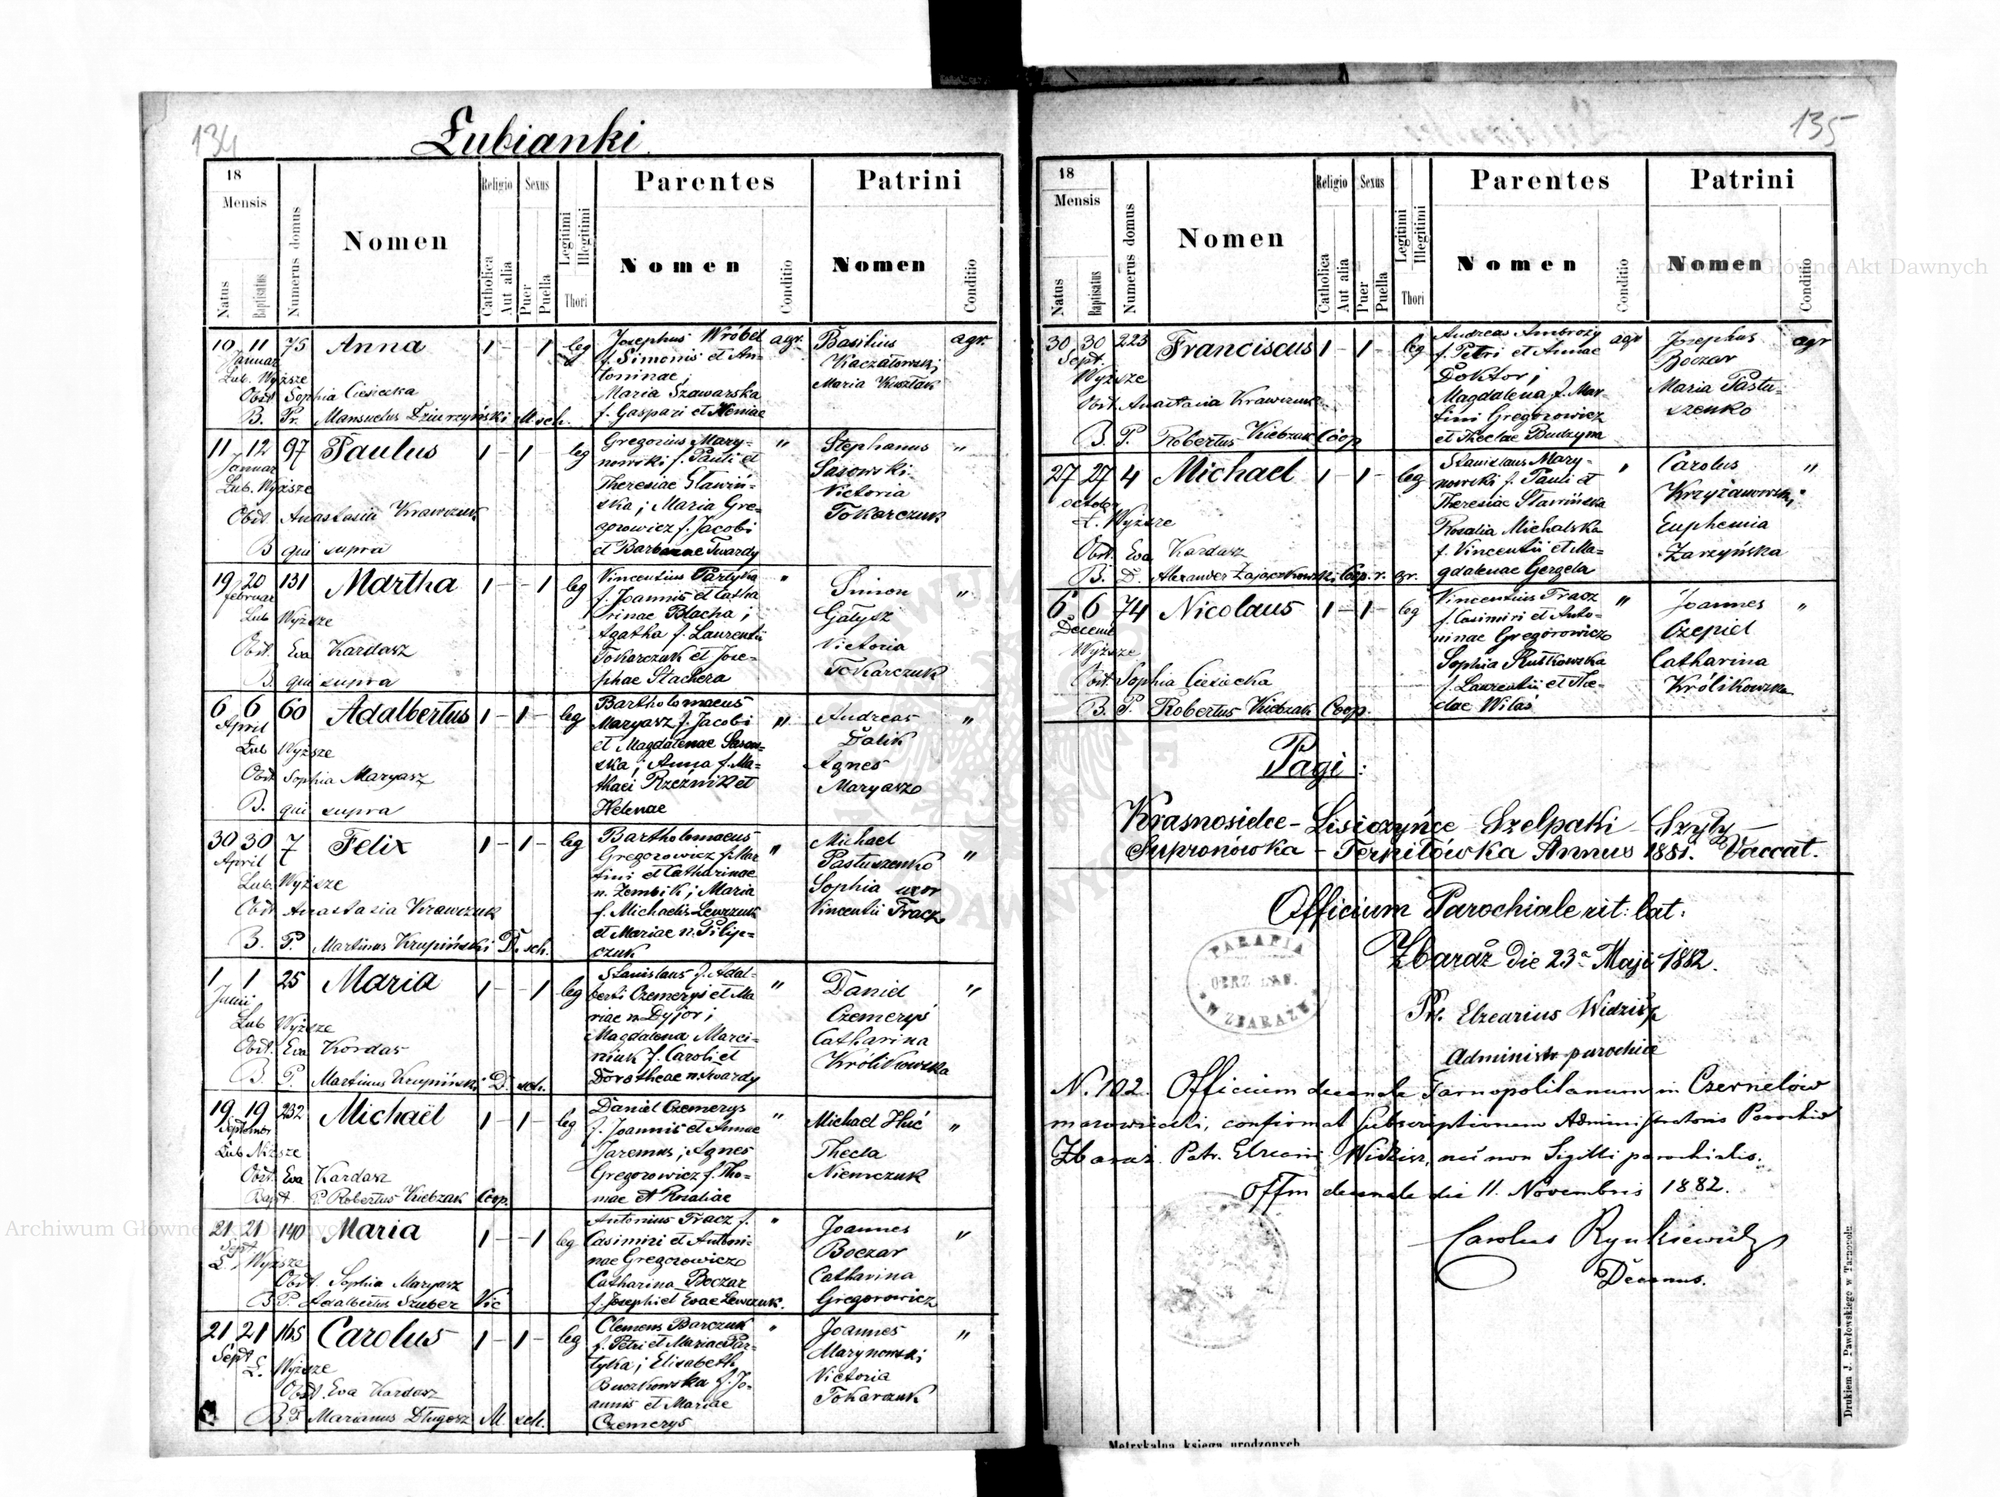 134
Łubianki.
18
Mensis
Natus
Baptisatus
Numerus domus
Nomen
Religio
Catholica
Aut alia
Sexus
Puer
Puella
Legitimi
Illegitimi
Thori
Parentes
Nomen
Conditio
Patrini
Nomen
Conditio
10 11 75 Anna 1 - - 1 leg
Januar
Łub. Wyższe
Obst Sophia Ciesiecka
B. Pr. Mansuetus Dziurzyński M sch.
Josephus Wróbel agr.
f. Simonis et An-
toninae;
Maria Szawarska
f. Gaspari et Xeniae
Basilius agr.
Kaczałowski
Maria Kusztak
11 12 97 Paulus 1 - 1 - leg
Januar
Łub. Wyższe
Obst. Anastasia Krawczuk
B qui supra
Gregorius Mary- "
nowski f. Pauli et
Theresiae Sławiń-
ska; Maria Gre-
gorowicz f. Jacobi
et Barbarae Twardy
Stephanus "
Sasowski
Victoria
Tokarczuk
19 20 131 Martha 1 - - 1 leg
februar
Łub Wyższe
Obst. Eva Kardasz
B. qui supra
Vincentius Partyka "
f. Joannis et Catha
rinae Blacha;
Agatha f. Laurentii
Tokarczuk et Jose-
phae Stachera
Simon "
Gałysz
Victoria
Tokarczuk
6 6 60 Adalbertus 1 - 1 - leg
April
Łub Wyższe
Obst Sophia Maryasz
B. qui supra
Bartholomaeus
Maryasz f. Jacobi "
et Magdalenae Sasow-
ska; Anna f. Ma-
thaei Rzeźnik et
Helenae
Andreas "
Dalik
Agnes
Maryasz
30 30 7 Felix 1 - 1 - leg
April
Łub. Wyższe
Obst Anastasia Krawczuk
B. P. Martinus Krupiński D. sch.
Bartholomaeus
Gregorowicz f. Mar "
tini et Catharinae
n. Zembik; Maria
f. Michaelis Lewczuk
et Mariae n. Pilip-
czuk
Michael
Pastuszenko "
Sophia uxor
Vincentii Tracz
1 1 25 Maria 1 - - 1 leg
Junii
Łub Wyższe
Obst. Eva Kordas
B P. Martinus Krupiński D. sch.
Stanislaus f. Adal-
berti Czemerys et Ma "
riae n. Dyjor;
Magdalena Marci-
niuk f. Caroli et
Dorotheae n. Twardy
Daniel "
Czemerys
Catharina
Królikowska
19 19 232 Michaël 1 - 1 - leg
Septembr
Łub Niższe
Obst. Eva Kardasz
Bapt. P. Robertus Kiebzak Coop.
Daniel Czemerys "
f. Joannis et Annae
Jaremus; Agnes
Gregorowicz f. Tho-
mae et Rosaliae
Michael Huć "
Thecla
Niemczuk
21 21 140 Maria 1 - - 1 leg
Sept
Ł. Wyższe
Obst. Sophia Maryasz
B P. Adalbertus Szuber Vic
Antonius Tracz f. "
Casimiri et Antoni-
nae Gregorowicz
Catharina Boczar
f. Josephi et Evae Lewczuk.
Joannes "
Boczar
Catharina
Gregorowicz
21 21 165 Carolus 1 - 1 - leg
Sept
Ł. Wyższe
Obst. Eva Kardasz
B P Marianus Długosz M. sch.
Clemens Barczuk "
f. Petri et Mariae Par-
tyka; Elisabeth
Buczkowska f. Jo-
annis et Mariae
Czemerys
Joannes "
Marynowski
Victoria
Tokarczuk
135
18
Mensis
Natus
Baptisatus
Numerus domus
Nomen
Religio
Catholica
Aut alia
Sexus
Puer
Puella
Legitimi
Illegitimi
Thori
Parentes
Nomen
Conditio
Patrini
Nomen
Conditio
30 30 223 Franciscus 1 - 1 - leg
Sept.
Wyższe
Obst. Anastasia Krawczuk
B. P. Robertus Kiebzak Coop
Andreas Ambroży agr
f. Petri et Annae
Doktor;
Magdalena f. Mar
tini Gregorowicz
et Theclae Budzyna
Josephus agr
Boczar
Maria Pastu-
szenko
27 27 4 Michael 1 - 1 - leg
octobr
Ł. Wyższe
Obst. Eva Kardasz
B. D. Alexander Zajączkowski Coop. r. gr.
Stanislaus Mary- "
nowski f. Pauli et
Theresiae Sławińska
Rosalia Michalska
f. Vincentii et Ma-
gdalenae Gergela
Carolus "
Krzyżanowski
Euphemia
Zarzyńska
6 6 74 Nicolaus 1 - 1 - leg
Decemb
Wyższe
Obst. Sophia Ciesiecka
B. P. Robertus Kiebzak Coop.
Vincentius Tracz "
f. Casimiri et Anto-
ninae Gregorowicz
Sophia Rutkowska
f. Laurentii et The-
clae Witas
Joannes "
Czepiel
Catharina
Królikowska
Pagi:
Krasnosielce - Lisiczyńce Szelpaki Szyły -
Supronówka - Terpiłówka Annus 1881. Vaccat.
Officium Parochiale rit: lat:
Zbaraż die 23a Maji 1882.
Pr. Elzearius Widzisz
Administr parochiae
PARAFIA
OBRZ. ŁAC.
W ZBARAŻU
N. 102. Officium decanale Tarnopolitanum in Czernelów
mazowiecki, confirmat Subscriptionem Administratoris Parochiae
Zbaraż Patr. Elzearii Widzisz, nec non Sigilli parochialis.
Offm decanale die 11. Novembris 1882.
Carolus Rynkiewicz
Decanus.
Metrykalna księga urodzonych
Drukiem J. Pawłowskiego w Tarnopolu
Archiwum Główne Akt Dawnych
Archiwum Główne Akt Dawnych